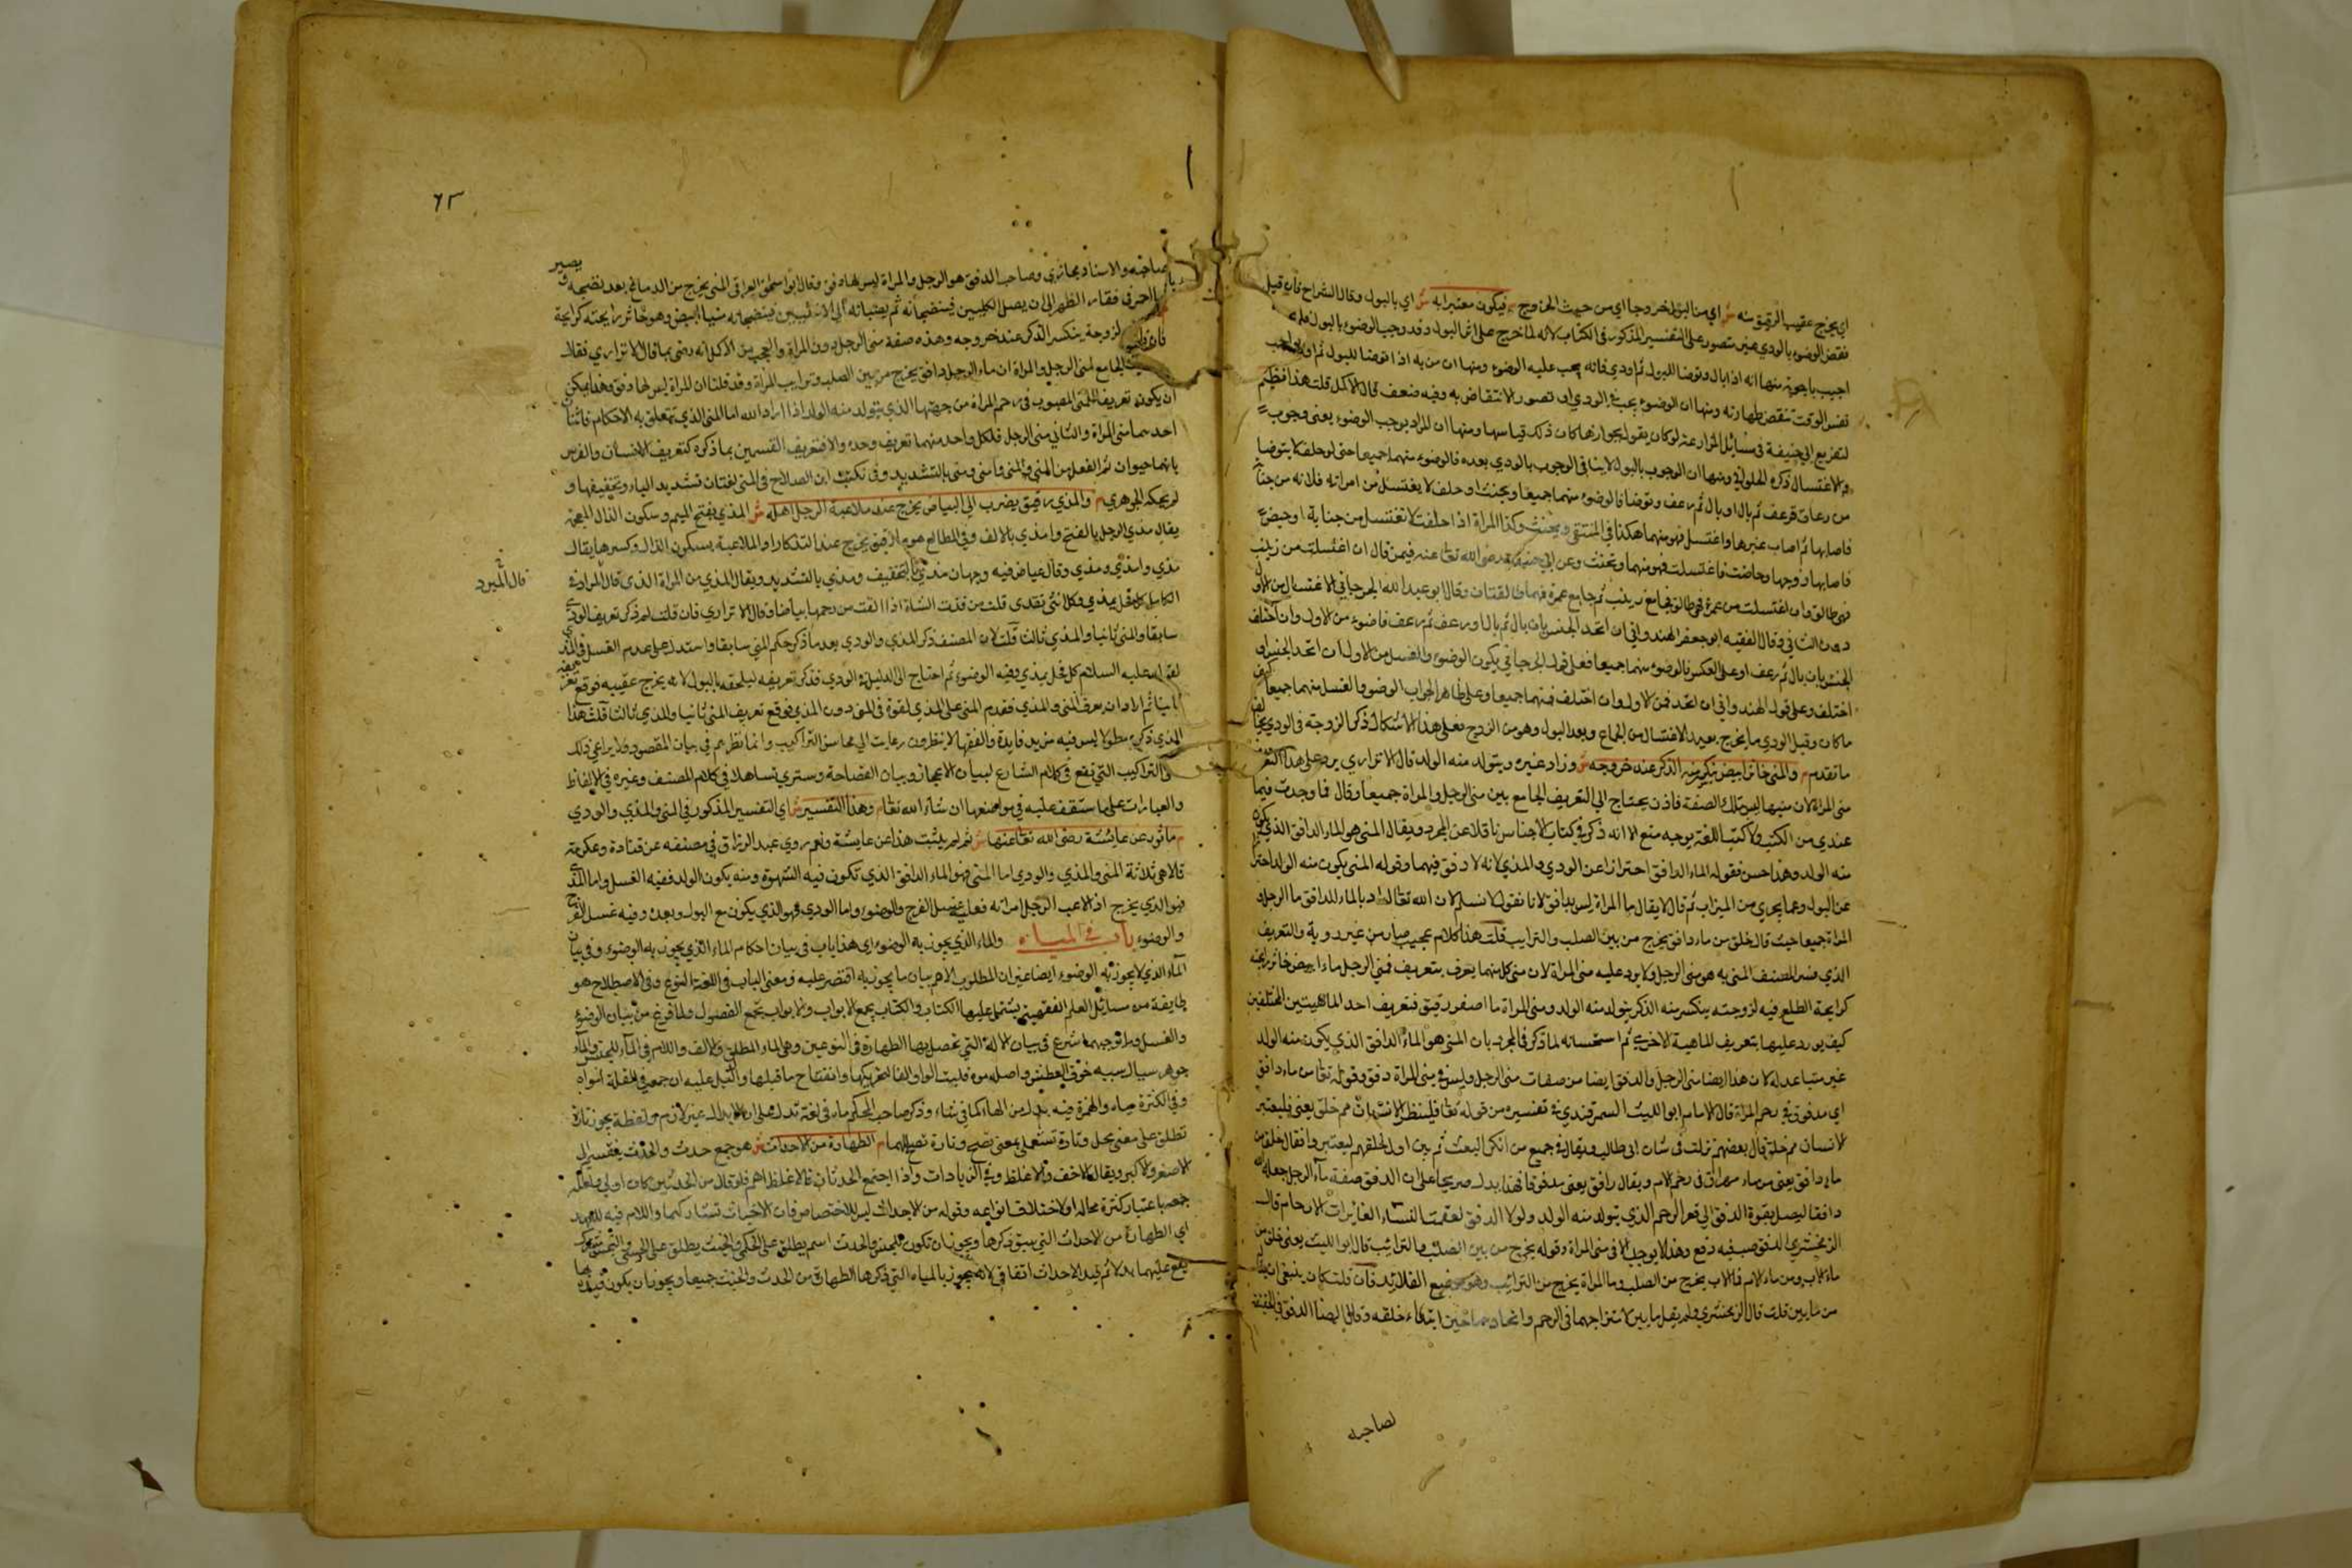 اي يخرج عقيب الرقيق منه ش اي من البول خروجا اي من حيث الخروج م فيكون معتبرا به ش اي بالبول وقال الشراح فان قيل
نقض الوضوء بالودي غير متصور على التفسير المذكور في الكتاب لانه لما خرج على اثر البول وقد وجب الوضوء بالبول
اجيب باجوبة منها انه اذا بال وتوضا للبول ثم اودي فانه يجب عليه الوضوء ومنها ان من به اذا توضا للبول ثم
نفس الوقت تنقض طهارته ومنها ان الوضوء يجب بالودي لو تصور الانتقاض به وفيه ضعف قال الاكمل قلت هذا
لتفريع ابي حنيفة في مسائل المزارعة لو كان يقول بجوازها كان ذلك قياسها ومنها ان المراد يوجب الوضوء يعني وجوب
والاغتسال ذكره الحلواني ومنها ان الوجوب بالبول لا ينافي الوجوب بالودي بعده فالوضوء منهما جميعا حتى لو حلف لا يتوضا
من رعاف فرعف ثم بال او بال ثم رعف وتوضا فالوضوء منهما جميعا ويحنث او حلف لا يغتسل من امراته فلانة من جنابة
فاصابها ثم اصاب غيرها واغتسل فهو منهما هكذا في المنتقى ويحنث وكذا المراة اذا حلفت لا تغتسل من جنابة او حيض
فاصابها زوجها وحاضت فاغتسلت فهو منهما وتحنث وعن ابي حنيفة رضي الله تعالى عنه فيمن قال ان اغتسلت من زينب
فهي طالق وان اغتسلت من عمرة فهي طالق فجامع زينب ثم جامع عمرة فهما طالقتان وقال ابو عبد الله الجرجاني الاغتسال من الاول
دون الثاني وقال الفقيه ابو جعفر الهندواني ان اتحد الجنس بان بال ثم بال او رعف ثم رعف فالوضوء من الاول وان اختلف
الجنس بان بال ثم رعف او على العكس فالوضوء منهما جميعا فعلى قول الجرجاني يكون الوضوء والغسل من الاول ان اتحد الجنس او
اختلف وعلى قول الهندواني ان اتحد فمن الاول وان اختلف فمنهما جميعا وعلى ظاهر الجواب الوضوء والغسل منهما جميعا
ما كان وقيل الودي ما يخرج بعد الاغتسال من الجماع وبعد البول وهو من الزوج فعلى هذا الاشكال ذكر الزوجة في الودي
ما تقدم م والمني خاثر ابيض ينكسر منه الذكر عند خروجه ش وزاد غيره ويتولد منه الولد قال الاتراري يرد على هذا التعريف
مني المراة لان منيها ليس بتلك الصفة فاذن يحتاج الي التعريف الجامع بين مني الرجل والمراة جميعا وقال فما وجدت فيما
عندي من الكتب ولا كتب اللغة بوجه مقنع الا انه ذكر في كتاب الاجناس ناقلا عن المجرد ويقال المني هو الماء الدافق الذي يكون
منه الولد وهذا حسن فقوله الماء الدافق احترازا عن الودي والمذي لانه لا دفق فيهما وقوله المني يكون منه الولد احترازا
عن البول وعما يجري من الميزاب ثم قال لا يقال ماء المراة ليس بدافق لانا نقول لا نسلم لان الله تعالى اراد بالماء الدافق ماء الرجل و
المراة جميعا حيث قال خلق من ماء دافق يخرج من بين الصلب والترايب قلت هذا كلام عجيب صادر من غير روية والتعريف
الذي فسر المصنف المني به هو مني الرجل فلا يرد عليه مني المراة لان مني كل منهما يعرف بتعريف فمني الرجل ماء ابيض خاثر رايحته
كرايحة الطلع فيه لزوجة ينكسر منه الذكر يتولد منه الولد ومني المراة ماء اصفر رقيق فتعريف احد الماهيتين المختلفين
كيف يورد عليها بتعريف الماهية الاخري ثم استحسانه لما ذكر في المجرد بان المني هو الماء الدافق الذي يكون منه الولد
غير متباعد له لان هذا ايضا مني الرجل والدفق ايضا من صفات مني الرجل وليس في مني المراة دفق وقوله تعالى من ماء دافق
اي مدفوق في رحم المراة قال الامام ابو الليث السمرقندي في تفسيره من قوله تعالى فلينظر الانسان مم خلق يعني فليعتبر
الانسان مم خلق قال بعضهم نزلت في شان ابي طالب ويقال في جميع من انكر البعث ثم بين اول خلقهم ليعتبروا فقال خلق من
ماء دافق يعني من ماء مهراق في رحم الام ويقال دافق يعني مدفوقا فهذا يدل صريحا على ان الدفق صفة ماء الرجل جعله
دافقا ليصل بقوة الدفق الي قعر الرحم الذي يتولد منه الولد ولولا الدفق لعقمت النساء الغايرات الارحام قال
الزمخشري الدفق صب فيه دفع وهذا لا يوجد الا في مني المراة وقوله يخرج من بين الصلب والترائب قال ابو الليث يعني خلق من
ماء الاب ومن ماء الام فماء الاب يخرج من الصلب وماء المراة يخرج من الترائب وهو موضع القلايد فان قلت كان ينبغي ان يقال
من مايين قلت قال الزمخشري ولم يقل ماءين لامتزاجهما في الرحم واتحادهما حين ابتداء خلقه وقال ايضا الدفق في الحقيقة
لصاحبه
٦٣
يصير
لصاحبه والاسناد مجازي وصاحب الدفق هو الرجل والمراة ليس لها دفق وقال ابو اسحاق العراقي المني يخرج من الدماغ بعد نضجه و
فقار الظهر الى ان يصل الكليتين فينضجانه ثم يصبانه الى الانثيين فينضجانه منيا ابيض وهو خاثر رايحته كرايحة
لزوجة ينكسر الذكر عند خروجه وهذه صفة مني الرجل دون المراة والعجب من الاكمل انه رضي بما قال الاتراري فقال
الجامع لمني الرجل والمراة ان ماء الرجل دافق يخرج من بين الصلب وترايب المراة وقد قلنا ان المراة ليس لها دفق وهذا يمكن
ان يكون تعريفا للمني المصبوب في رحم المراة من جهتها الذي يتولد منه الولد اذا اراد الله اما المني الذي يتعلق به الاحكام فاثنان
احدهما مني المراة والثاني مني الرجل فلكل واحد منهما تعريف وحده والا فتعريف القسمين بما ذكره كتعريف الانسان والفرس
بانهما حيوان ثم الفعل من المني والمني وامني ومني بالتشديد وفي نكت ابن الصلاح في المني لغتان تشديد الياء وتخفيفها و
لم يحكه الجوهري م والمذي رقيق يضرب الي البياض يخرج عند ملاعبة الرجل اهله ش المذي بفتح الميم وسكون الذال المعجمة
يقال مذي الرجل بالفتح وامذي بالالف وفي المطالع هو ماء رقيق يخرج عند التذكار او الملاعبة بسكون الذال وكسرها يقال
مذي وامذي ومذي وقال عياض فيه وجهان مذي بالتخفيف ومذي بالتشديد ويقال المذي من المراة القذي قال المبرد في
قال المبرد
الكامل كل فحل يمذي وكل انثى تقذي قلت من قذت الشاة اذا القت من رحمها بياضا وقال الاتراري فان قلت لم ذكر تعريف الودي
سابقا والمني ثانيا والمذي ثالثا قلت لان المصنف ذكر المذي والودي بعد ما ذكر حكم المني سابقا واستدل على عدم الغسل في المذي
لقوله عليه السلام كل فحل يمذي وفيه الوضوء ثم احتاج الى الدليل في الودي فذكر تعريفه ليلحقه بالبول لانه يخرج عقيبه فوقع تعريفه
ثم اراد ان يعرف المني والمذي فقدم المني على المذي لقوة في المني دون المذي فوقع تعريف المني ثانيا والمذي ثالثا قلت هذا
الذي ذكره مطولا ليس فيه مزيد فايدة والفقها لا ينظرون رعايت الي محاسن التراكيب وانما نظرهم في بيان المقصود فلا يراعي ذلك
الا التراكيب التي تقع في كلام الشارع لبيان الاعجاز وبيان الفصاحة وستري تساهلا في كلام المصنف وغيره في الالفاظ
والعبارات على ما ستقف عليه في مواضعها ان شاء الله تعالى م وهذا التفسير ش اي التفسير المذكور في المني والمذي والودي
م ماثور عن عايشة رضي الله تعالى عنها ش ثم لم يثبت هذا عن عايشة ونعم روي عبد الرزاق في مصنفه عن قتادة وعكرمة
قالا هي ثلاثة المني والمذي والودي اما المني فهو الماء الدافق الذي تكون فيه الشهوة ومنه يكون الولد ففيه الغسل واما المذي
فهو الذي يخرج اذا لاعب الرجل امراته فعليه غسل الفرج والوضوء واما الودي فهو الذي يكون مع البول وبعده وفيه غسل الفرج
والوضوء باب في المياه والماء الذي يجوز به الوضوء اي هذا باب في بيان احكام الماء الذي يجوز به الوضوء وفي بيان
الماء الذي لا يجوز به الوضوء ايضا غير ان المطلوب الاهم بيان ما يجوز به اقتصر عليه ومعنى الباب في اللغة النوع وفي الاصطلاح هو
طايفة من مسائل العلم الفقهية يشتمل عليها الكتاب والكتاب يجمع الابواب والابواب تجمع الفصول ولما فرغ من بيان الوضوء
والغسل وما توجبهما شرع في بيان الالة التي تحصل بها الطهارة في النوعين وهي الماء المطلق والالف واللام في الماء للجنس والماء
جوهر سيال سببه خرق العطش واصله موه قلبت الواو الفا لتحركها وانفتاح ما قبلها والدليل عليه ان جمعه في القلة امواه
وفي الكثرة مياه والهمزة فيه بدل من الهاء كما في شاء وذكر صاحب المحكم ماء في لغة تدل على ان الابدال غير لازم ولفظة يجوز تارة
تطلق على معنى يحل وتارة تستعمل بمعنى تصح وتارة تصلح لهما م الطهارة من الاحداث ش هو جمع حدث والحدث يفسر الى
الاصغر والاكبر ويقال الاخف والاغلظ وفي الزيادات واذا اجتمع الحدثان فالاغلظ اهم فلو قال من الحدثين كان اولي ولعله
جمعه باعتبار كثرة محاله او لاختلاف انواعه وقوله من الاحداث ليس للاختصاص فان الاخباث تشاركهما واللام فيه للعهد
اي الطهارة من الاحداث التي سبق ذكرها ويجوز ان تكون للجنس والحدث اسم يطلق على الحكمي والخبث يطلق على الحسي والنجس
يقع عليهما بدلا ثم قيد الاحداث اتفاقي لانه يجوز بالمياه التي ذكرها الطهارة من الحدث والخبث جميعا ويجوز ان يكون قيده بها